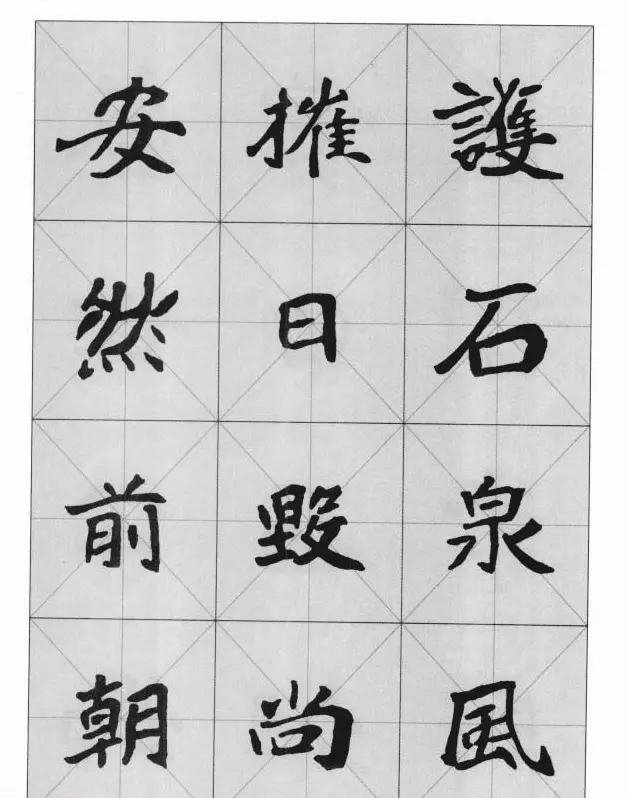 護石泉風
摧日毀尚
安然前朝